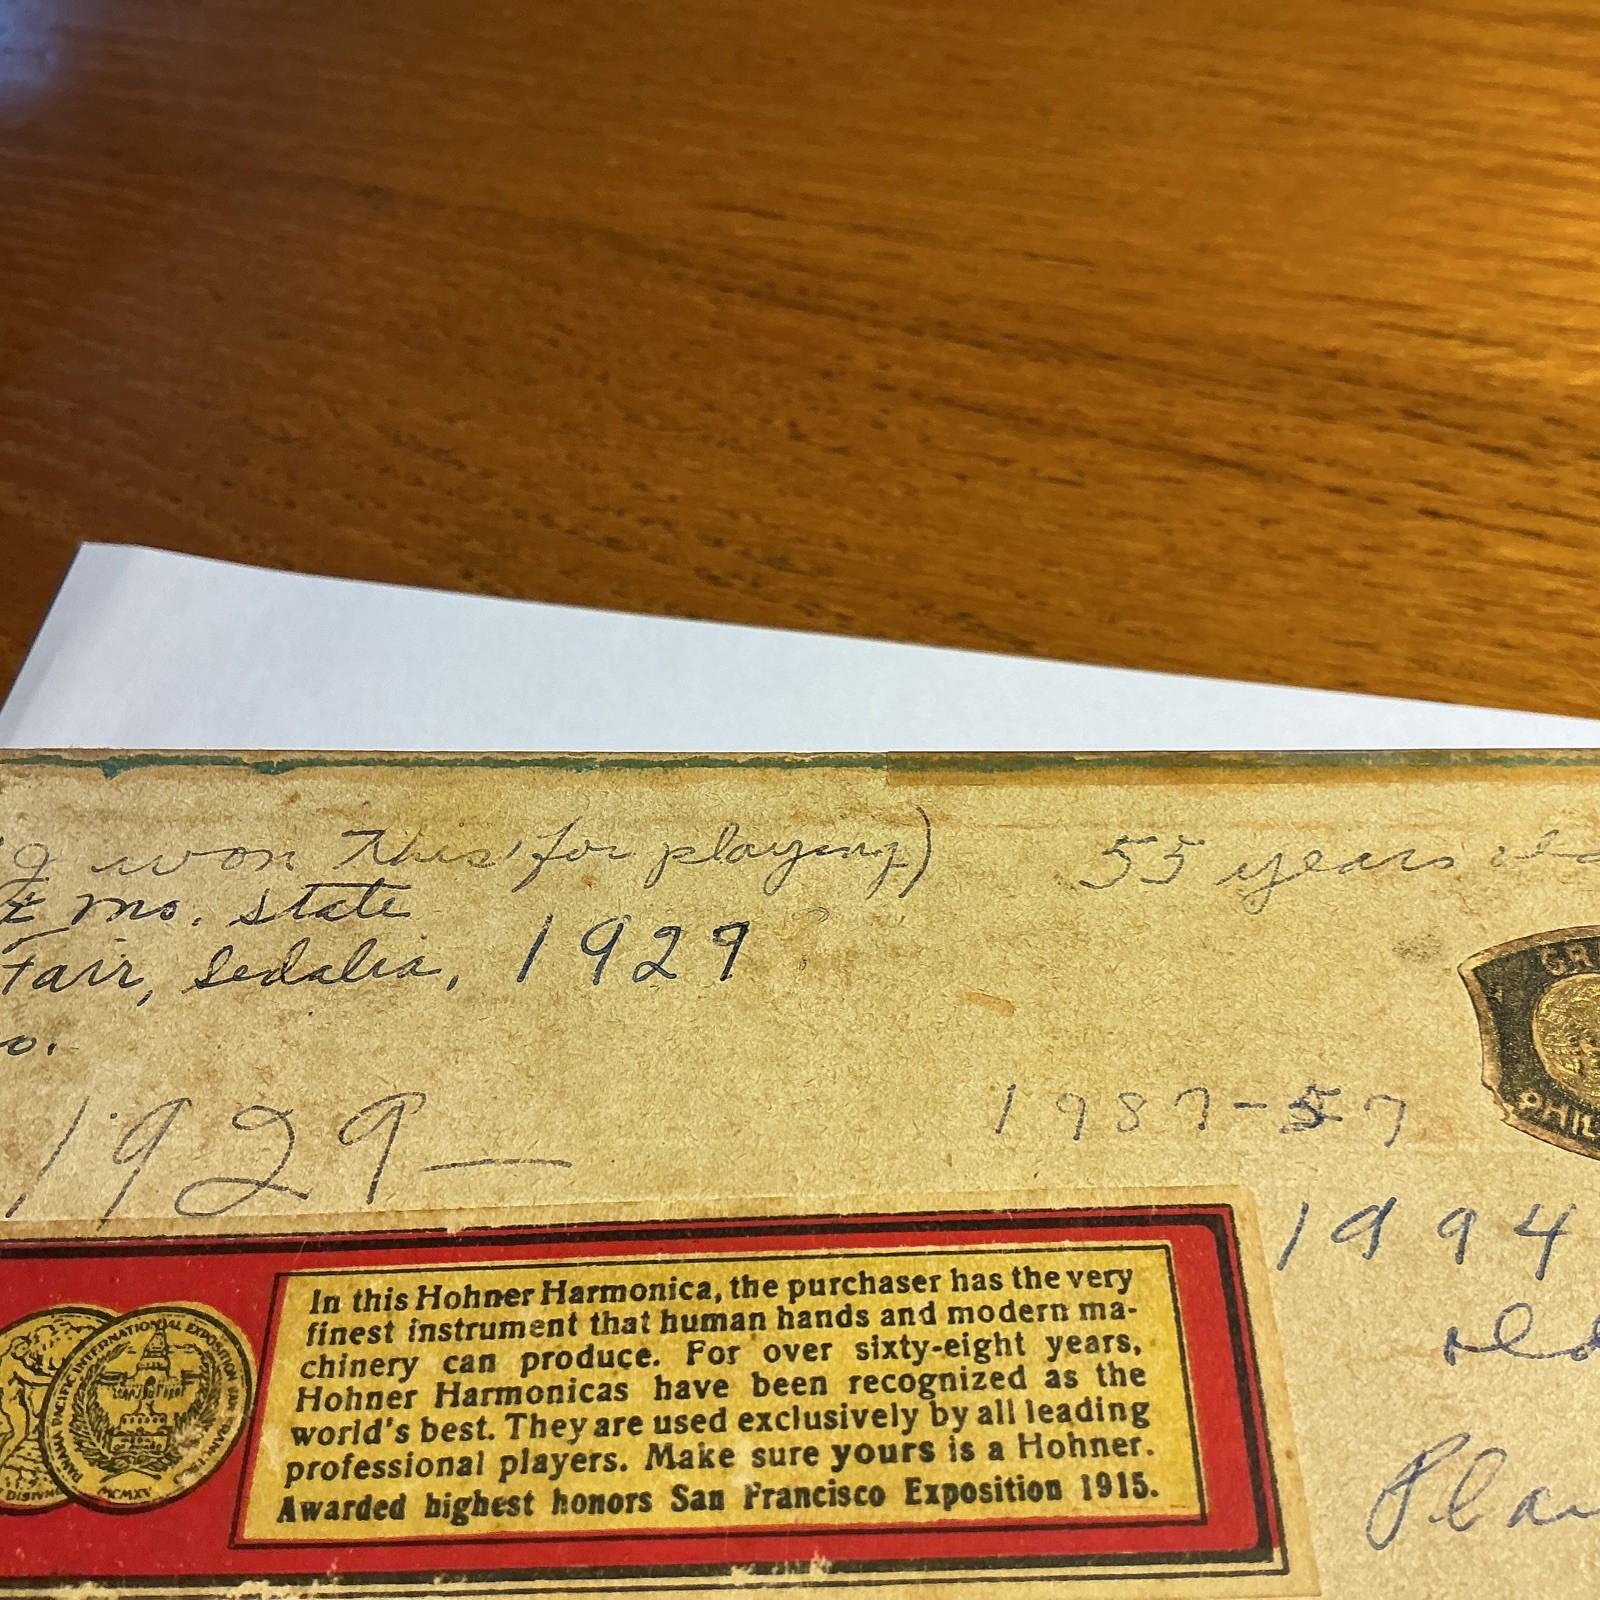 I won this for playing)
55 years old
t Mo. State
Fair, Sedalia, 1929
o.
1929—
1987-57
1994
old
Pla
GR
PHIL
PANAMA PACIFIC INTERNATIONAL EXPOSITION SAN FRANCISCO
MCMXV
In this Hohner Harmonica, the purchaser has the very
finest instrument that human hands and modern ma-
chinery can produce. For over sixty-eight years,
Hohner Harmonicas have been recognized as the
world's best. They are used exclusively by all leading
professional players. Make sure yours is a Hohner.
Awarded highest honors San Francisco Exposition 1915.